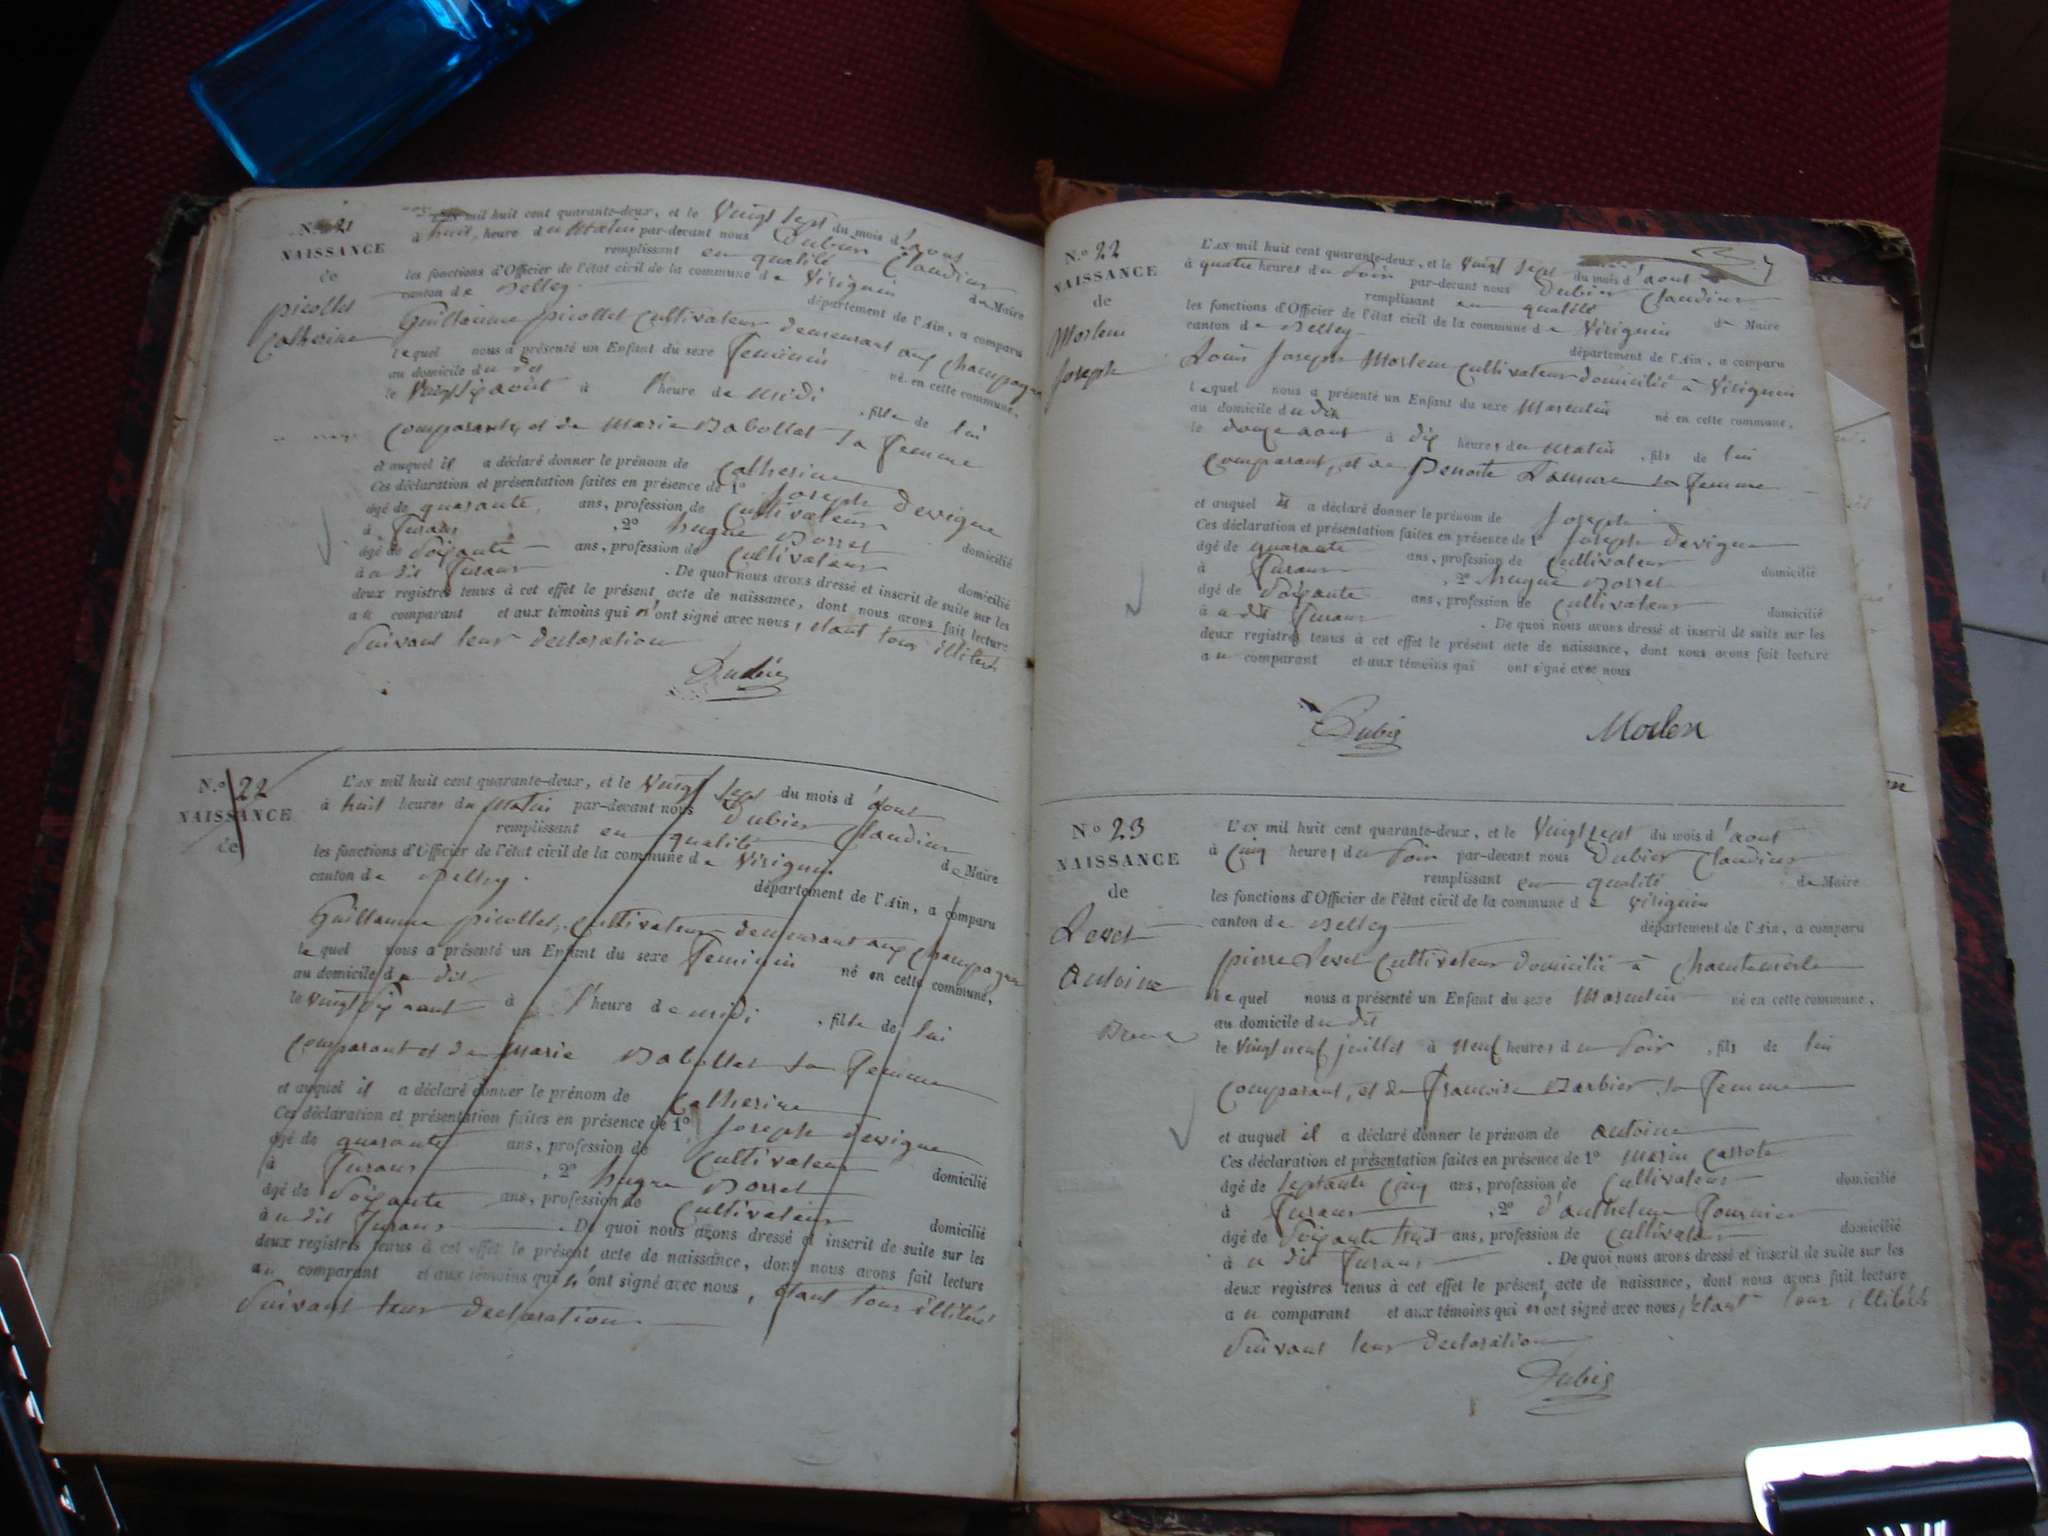 N.o 21
NAISSANCE
de
picollet
Catherine
L'AN mil huit cent quarante-deux, et le Vingt sept du mois d'aout
à huit heure du Matin par-devant nous Dubier Claudius
remplissant en qualité de Maire
les fonctions d'Officier de l'état civil de la commune de Virignin
canton de Belley département de l'Ain, a comparu
Guillaume picollet Cultivateur demeurant aux Champagne
lequel nous a présenté un Enfant du sexe Feminin né en cette commune,
au domicile du dit
le Vingt six août à l'heure de midi , fille de lui
comparant, et de Marie Babollat sa Femme
et auquel il a déclaré donner le prénom de Catherine
Ces déclaration et présentation faites en présence de 1o Joseph Devigne
âgé de quarante ans, profession de Cultivateur domicilié
à Furans , 2o hugue Borret
âgé de Soixante ans, profession de Cultivateur domicilié
à u dit Furans . De quoi nous avons dressé et inscrit de suite sur les
deux registres tenus à cet effet le présent acte de naissance, dont nous avons fait lecture
au comparant et aux témoins qui n'ont signé avec nous, étant tous illitérés
Suivant leur declaration
Dubier
N.o 22
NAISSANCE
de
L'AN mil huit cent quarante-deux, et le Vingt sept du mois d'aout
à huit heures du Matin par-devant nous Dubier Claudius
remplissant en qualité de Maire
les fonctions d'Officier de l'état civil de la commune de Virignin
canton de Belley. département de l'Ain, a comparu
Guillaume picollet, Cultivateur demeurant aux Champagne
lequel nous a présenté un Enfant du sexe Feminin né en cette commune,
au domicile du dit
le vingt six aout à l'heure de midi , fille de lui
comparant et de Marie Babollat sa Femme
et auquel il a déclaré donner le prénom de Catherine
Ces déclaration et présentation faites en présence de 1o Joseph devigne
âgé de quarante ans, profession de Cultivateur domicilié
à Furans , 2o hugue Borret
âgé de Soixante ans, profession de Cultivateur domicilié
à u dit Furans . De quoi nous avons dressé et inscrit de suite sur les
deux registres tenus à cet effet le présent acte de naissance, dont nous avons fait lecture
au comparant et aux témoins qui n'ont signé avec nous, étant tous illitérés
Suivant leur declaration.
N.o 22
NAISSANCE
de
Morlem
Joseph
L'AN mil huit cent quarante-deux, et le Vingt sept du mois d'aout
à quatre heures du Soir par-devant nous Dubier Claudius
remplissant en qualité de Maire
les fonctions d'Officier de l'état civil de la commune de Virignin
canton de Belley département de l'Ain, a comparu
Louis Joseph Morlem Cultivateur domicilié à Virignin
lequel nous a présenté un Enfant du sexe Masculin né en cette commune,
au domicile du dit
le douze aout à dix heures du matin , fils de lui
comparant, et de Benoite sa Femme
et auquel il a déclaré donner le prénom de Joseph
Ces déclaration et présentation faites en présence de 1o Joseph devigne
âgé de quarante ans, profession de Cultivateur domicilié
à Furans , 2o hugue Borret
âgé de Soixante ans, profession de Cultivateur domicilié
à u dit Furans . De quoi nous avons dressé et inscrit de suite sur les
deux registres tenus à cet effet le présent acte de naissance, dont nous avons fait lecture
au comparant et aux témoins qui ont signé avec nous
Dubier Morlem
No 23
NAISSANCE
de
Level
Antoine
L'AN mil huit cent quarante-deux, et le Vingt sept du mois d'aout
à Cinq heures du Soir par-devant nous Dubier Claudius
remplissant en qualité de Maire
les fonctions d'Officier de l'état civil de la commune de Virignin
canton de Belley département de l'Ain, a comparu
pierre Level Cultivateur domicilié à Chantemerle
lequel nous a présenté un Enfant du sexe Masculin né en cette commune,
au domicile du dit
le Vingt neuf juillet à Neuf heures du Soir , fils de lui
comparant, et de Francoise Barbier sa Femme
et auquel il a déclaré donner le prénom de Antoine
Ces déclaration et présentation faites en présence de 1o Marin Carrote
âgé de Septante Cinq ans, profession de Cultivateur domicilié
à Furans , 2o d'anthelme Fournier
âgé de Soixante trois ans, profession de Cultivateur domicilié
à u dit Furans . De quoi nous avons dressé et inscrit de suite sur les
deux registres tenus à cet effet le présent acte de naissance, dont nous avons fait lecture
au comparant et aux témoins qui n'ont signé avec nous, étant tous illitérés
Suivant leur declaration
Dubier